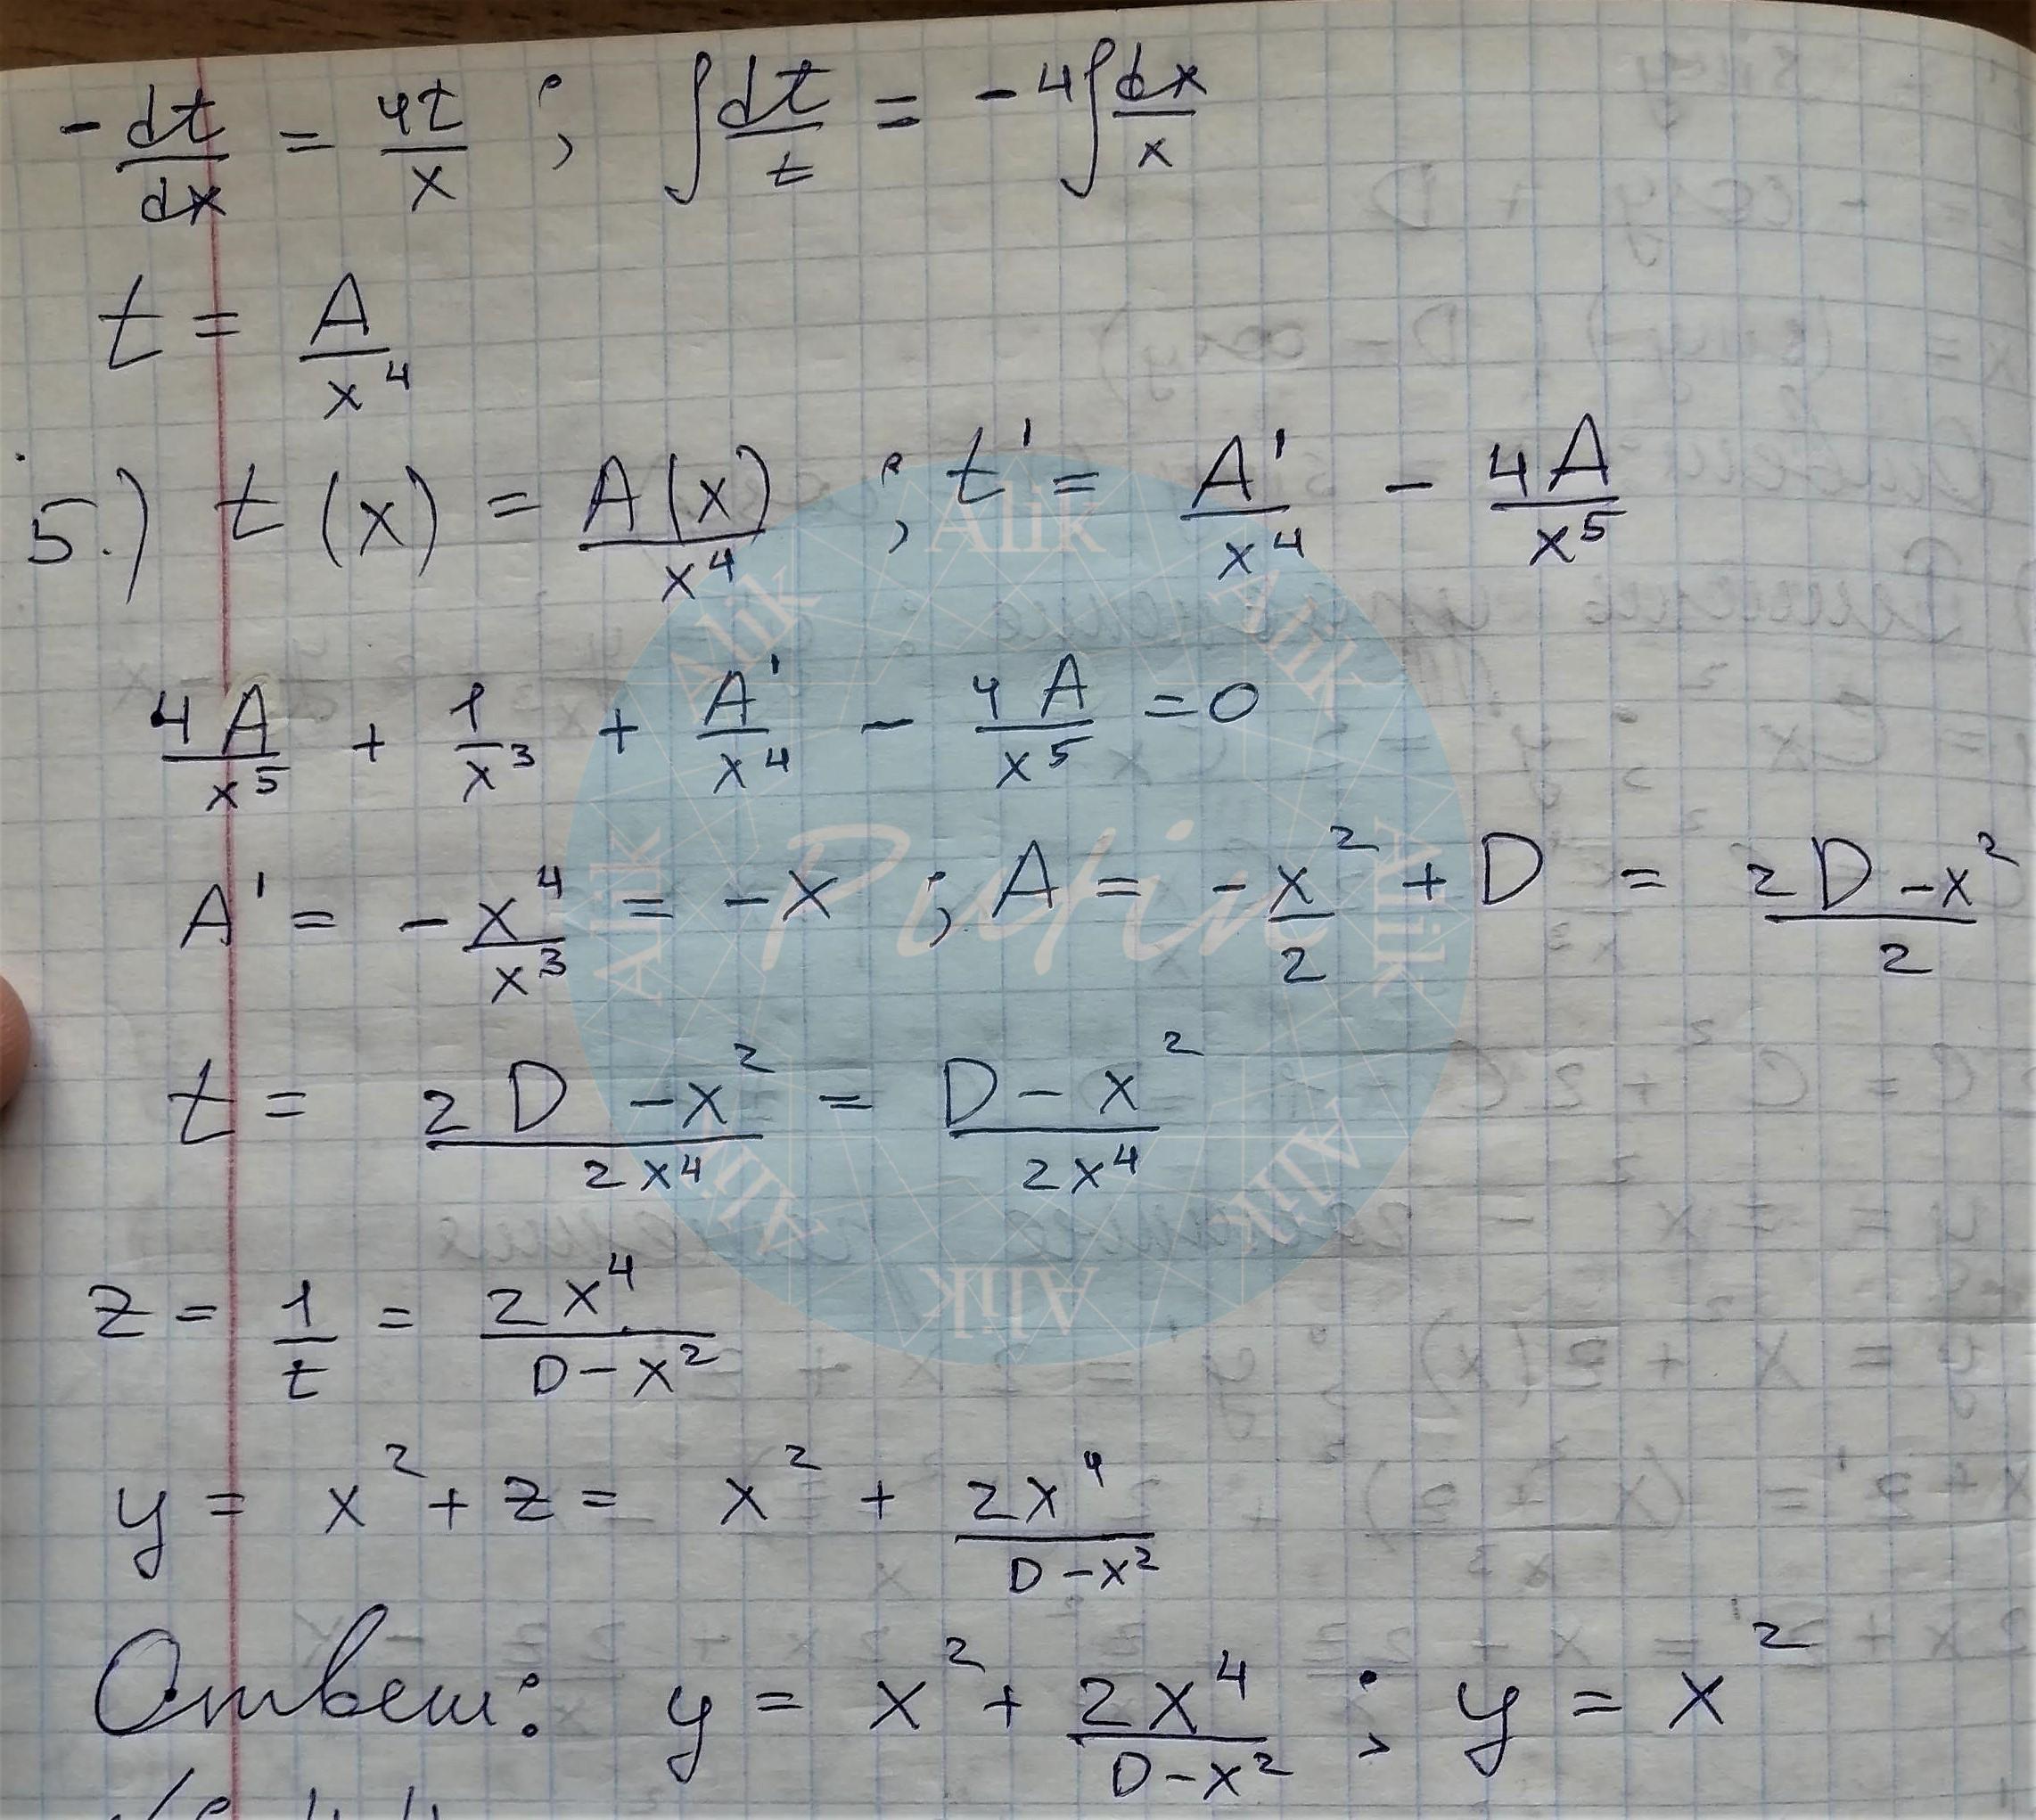 -dt/dx = 4t/x ; ∫dt/t = -4∫dx/x
t = A/x⁴
5.) t(x) = A(x)/x⁴ ; t' = A'/x⁴ - 4A/x⁵
4A/x⁵ + 1/x³ + A'/x⁴ - 4A/x⁵ = 0
A' = -x⁴/x³ = -x ; A = -x²/2 + D = (2D - x²)/2
t = (2D - x²)/2x⁴ = (D - x²)/2x⁴
z = 1/t = 2x⁴/(D - x²)
y = x² + z = x² + 2x⁴/(D - x²)
Ответ: y = x² + 2x⁴/(D - x²) ; y = x²
Alik Alik Alik Alik Alik Alik Alik Alik
Putin